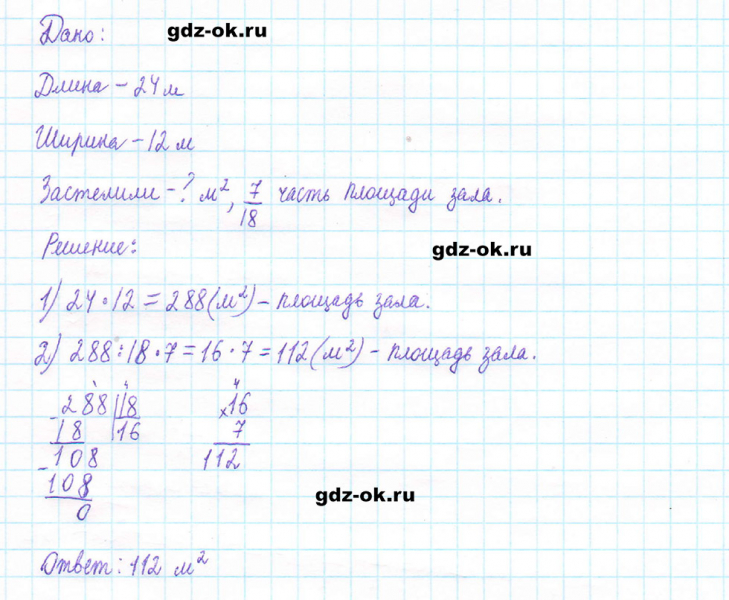 Дано: gdz-ok.ru
Длина – 24 м
Ширина – 12 м
Застелили – ? м², 7/18 часть площади зала.
Решение:
gdz-ok.ru
1) 24 · 12 = 288 (м²) – площадь зала.
2) 288 : 18 · 7 = 16 · 7 = 112 (м²) – площадь зала.
4
288 | 18 × 16
- 18 | 16 7
- 108 112
108
gdz-ok.ru
0
Ответ: 112 м²